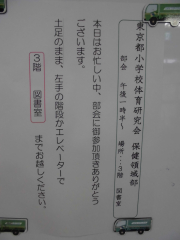 東京都小学校体育研究会 保健領域部
部会 午後一時半～ 場所…3階 図書室
本日はお忙しい中、部会に御参加頂きありがとう
ございます。
土足のまま、左手の階段かエレベーターで
3階 図書室 までお越しください。